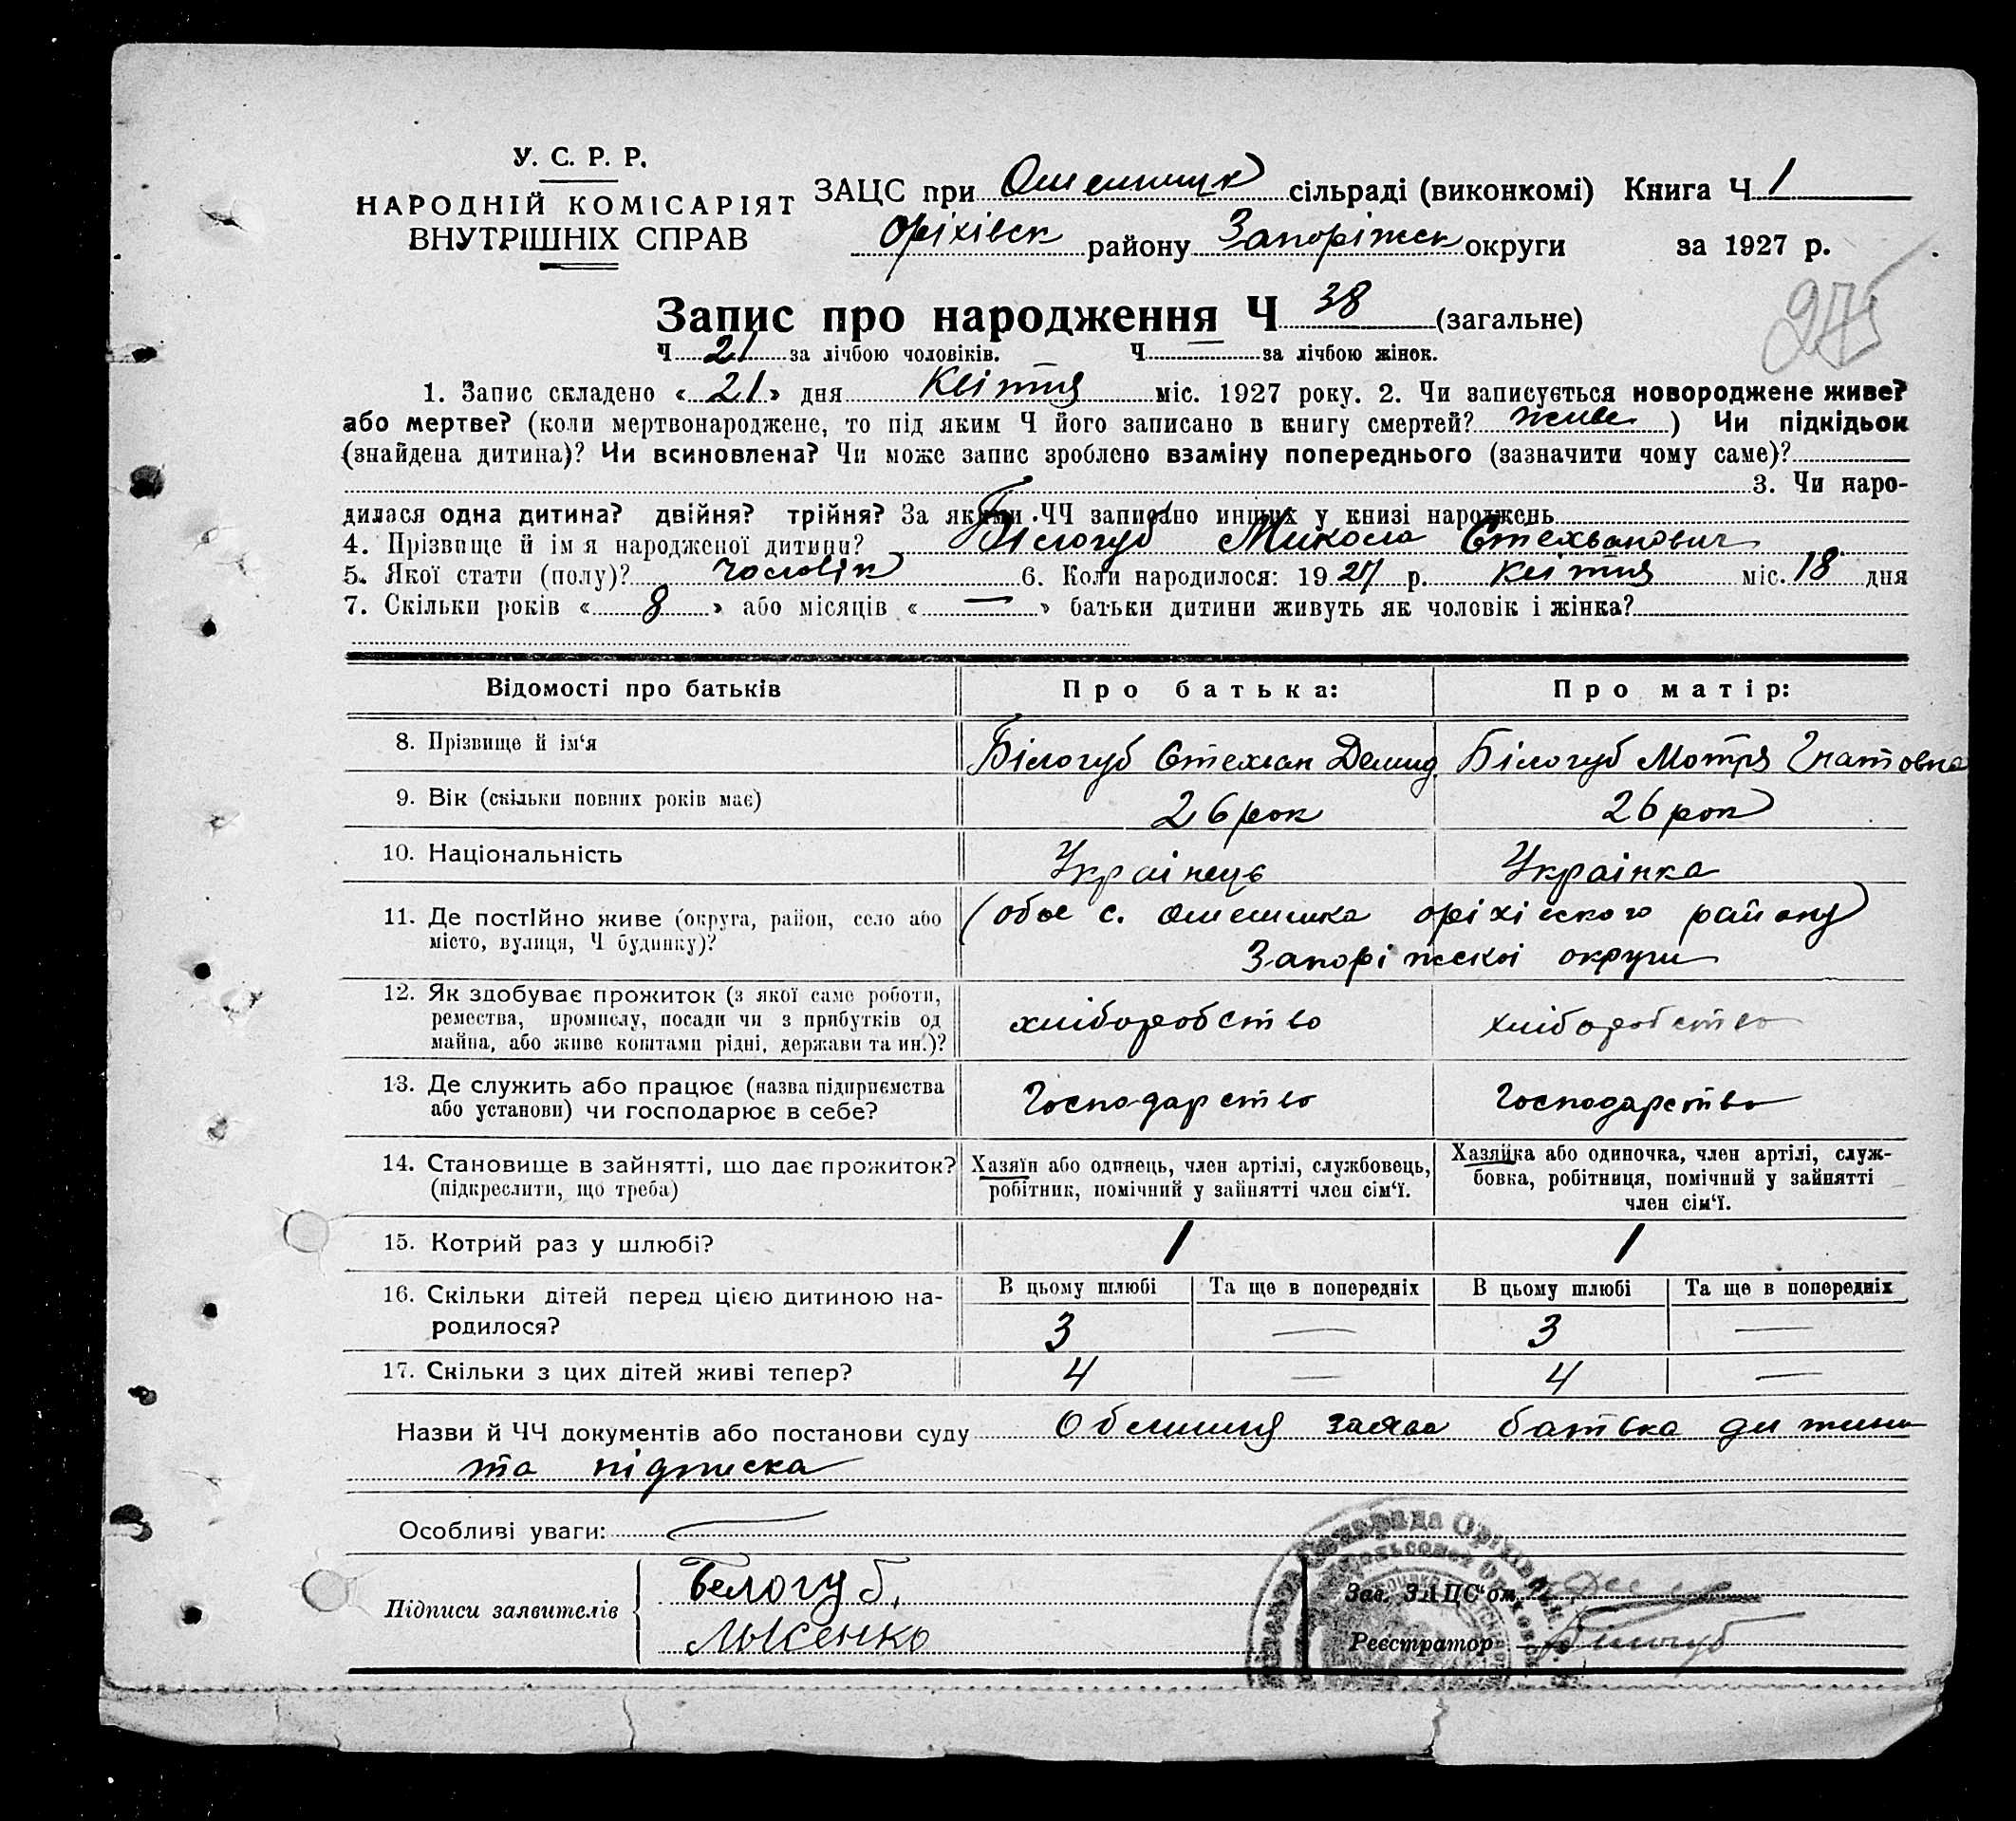 У. С. Р. Р.
НАРОДНІЙ КОМІСАРІЯТ
ВНУТРІШНІХ СПРАВ
ЗАЦС при сільраді (виконкомі) Книга Ч 1
Оріхівск району Запоріжск округи за 1927 р.
275
Запис про народження Ч 38 (загальне)
Ч 21 за лічбою чоловіків. Ч за лічбою жінок.
1. Запис складено « 21 » дня Квітня міс. 1927 року. 2. Чи записується новороджене живе?
або мертве? (коли мертвонароджене, то під яким Ч його записано в книгу смертей? живе ) Чи підкідьок
(знайдена дитина)? Чи всиновлена? Чи може запис зроблено взаміну попереднього (зазначити чому саме)?
3. Чи наро-
дилася одна дитина? двійня? трійня? За якими ЧЧ записано инших у книзі народжень
4. Прізвище й ім я народженої дитини? Білогуб Микола Стехванович
5. Якої стати (полу)? чоловік 6. Коли народилося: 1927 р. квітня міс. 18 дня
7. Скільки років « 8 » або місяців « — » батьки дитини живуть як чоловік і жінка?
Відомості про батьків Про батька: Про матір:
8. Прізвище й ім‘я Білогуб Стехван Демид. Білогуб Мотря Гнатовна
9. Вік (скільки повних років має) 26 рок 26 рок
10. Національність Українець Українка
11. Де постійно живе (округа, район, село або
місто, вулиця, Ч будинку)?
(обоє с. Омельника оріхівского району
Запоріжскоі округи
12. Як здобуває прожиток (з якої саме роботи,
ремества, промислу, посади чи з прибутків од
майна, або живе коштами рідні, держави та ин.)?
хліборобство хліборобство
13. Де служить або працює (назва підприємства
або установи) чи господарює в себе?
Господарство Господарство
14. Становище в зайнятті, що дає прожиток?
(підкреслити, що треба)
Хазяїн або одинець, член артілі, службовець,
робітник, помічний у зайнятті член сім‘ї.
Хазяйка або одиночка, член артілі, служ-
бовка, робітниця, помічний у зайнятті
член сім‘ї.
15. Котрий раз у шлюбі? 1 1
16. Скільки дітей перед цією дитиною на-
родилося?
В цьому шлюбі Та ще в попередніх В цьому шлюбі Та ще в попередніх
3 — 3 —
17. Скільки з цих дітей живі тепер? 4 — 4 —
Назви й ЧЧ документів або постанови суду заява батька дитини
та підписка
Особливі уваги:
Підписи заявителів
Белогуб,
Лысенко
Зав. ЗАЦС‘ом
Реєстратор Білогуб